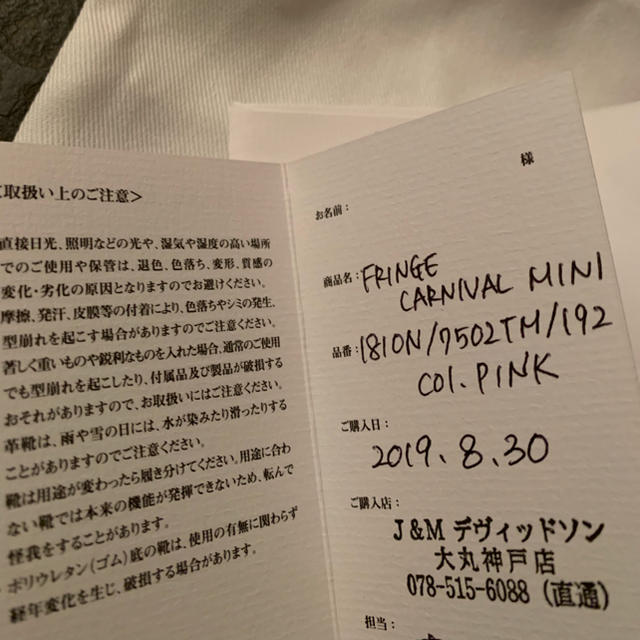 取扱い上のご注意>
直接日光、照明などの光や、湿気や湿度の高い場所
でのご使用や保管は、退色、色落ち、変形、質感の
変化・劣化の原因となりますのでお避けください。
摩擦、発汗、皮膜等の付着により、色落ちやシミの発生、
型崩れを起こす場合がありますのでご注意ください。
著しく重いものや鋭利なものを入れた場合、通常のご使用
でも型崩れを起こしたり、付属品及び製品が破損する
おそれがありますので、お取扱いにはご注意ください。
革靴は、雨や雪の日には、水が染みたり滑ったりする
ことがありますのでご注意ください。
靴は用途が変わったら履き分けてください。用途に合わ
ない靴では本来の機能が発揮できないため、転んで
怪我をすることがあります。
ポリウレタン(ゴム)底の靴は、使用の有無に関わらず
経年変化を生じ、破損する場合があります。
様
お名前：
商品名：FRINGE
CARNIVAL MINI
品番：1810N/7502TM/192
COl. PINK
ご購入日：
2019. 8. 30
ご購入店：
J&M デヴィッドソン
大丸神戸店
078-515-6088（直通）
担当：